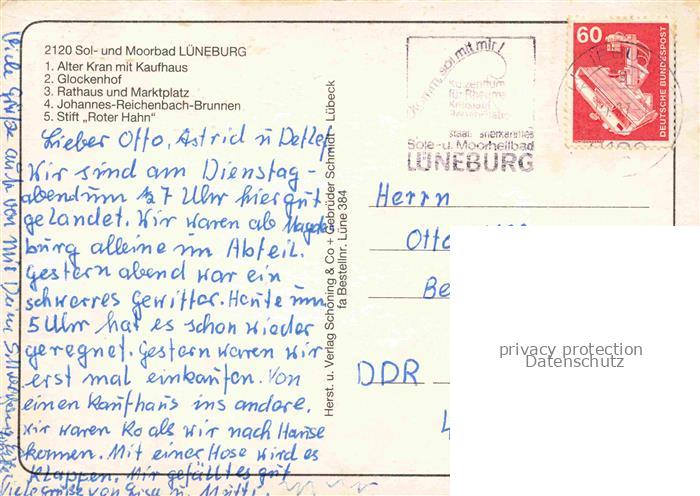 2120 Sol- und Moorbad LÜNEBURG
1. Alter Kran mit Kaufhaus
2. Glockenhof
3. Rathaus und Marktplatz
4. Johannes-Reichenbach-Brunnen
5. Stift „Roter Hahn“
Lieber Otto, Astrid u Detlef
Wir sind am Dienstag-
abend um ½7 Uhr hier gut
gelandet. Wir waren ab Magde
burg alleine im Abteil.
Gestern abend war ein
schweres Gewitter. Heute um
5 Uhr hat es schon wieder
geregnet. Gestern waren wir
erst mal einkaufen. Von
einen Kaufhaus ins andere.
Wir waren Ko als wir nach Hause
kommen. Mit einer Hose wird es
klappen. Mir gefällt es gut
Viele Grüße von u. Mutti.
Viele Grüße auch von mir Deine
Herst. u. Verlag Schöning & Co + Gebrüder Schmidt - Lübeck
fa Bestellnr. Lüne 384
Komm, sol mit mir!
Kurzentrum
für Rheuma
staatl. anerkanntes
Sole- u. Moorheilbad
LÜNEBURG
60
DEUTSCHE BUNDESPOST
Herrn
Otto
Be
DDR
4
privacy protection
Datenschutz